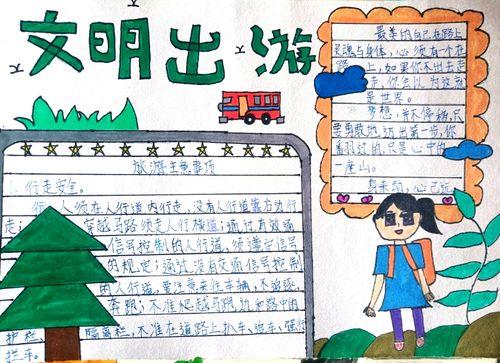 文明出游
最美的自己在路上
灵魂与身体,必须有一个在
路上,如果你不出去走
走,你会以为这就
是世界。
梦想,前不停稍,只
要勇敢地迈出第一步,你
翻过的,只是心中的
一座山。
身未动,心已远
旅游注意事项
1、行走安全。
行人须在人行道内行走,没有人行道靠右边行
走;穿越马路须走人行横道;通过有交通
信号控制的人行道,须遵守信号
的规定;通过没有交通信号控制
的人行道,要注意来往车辆,不追逐,
奔跑;不准爬越马路边和路中的
护栏、隔离栏,不准在道路上扒车、追车、强行
拦车。